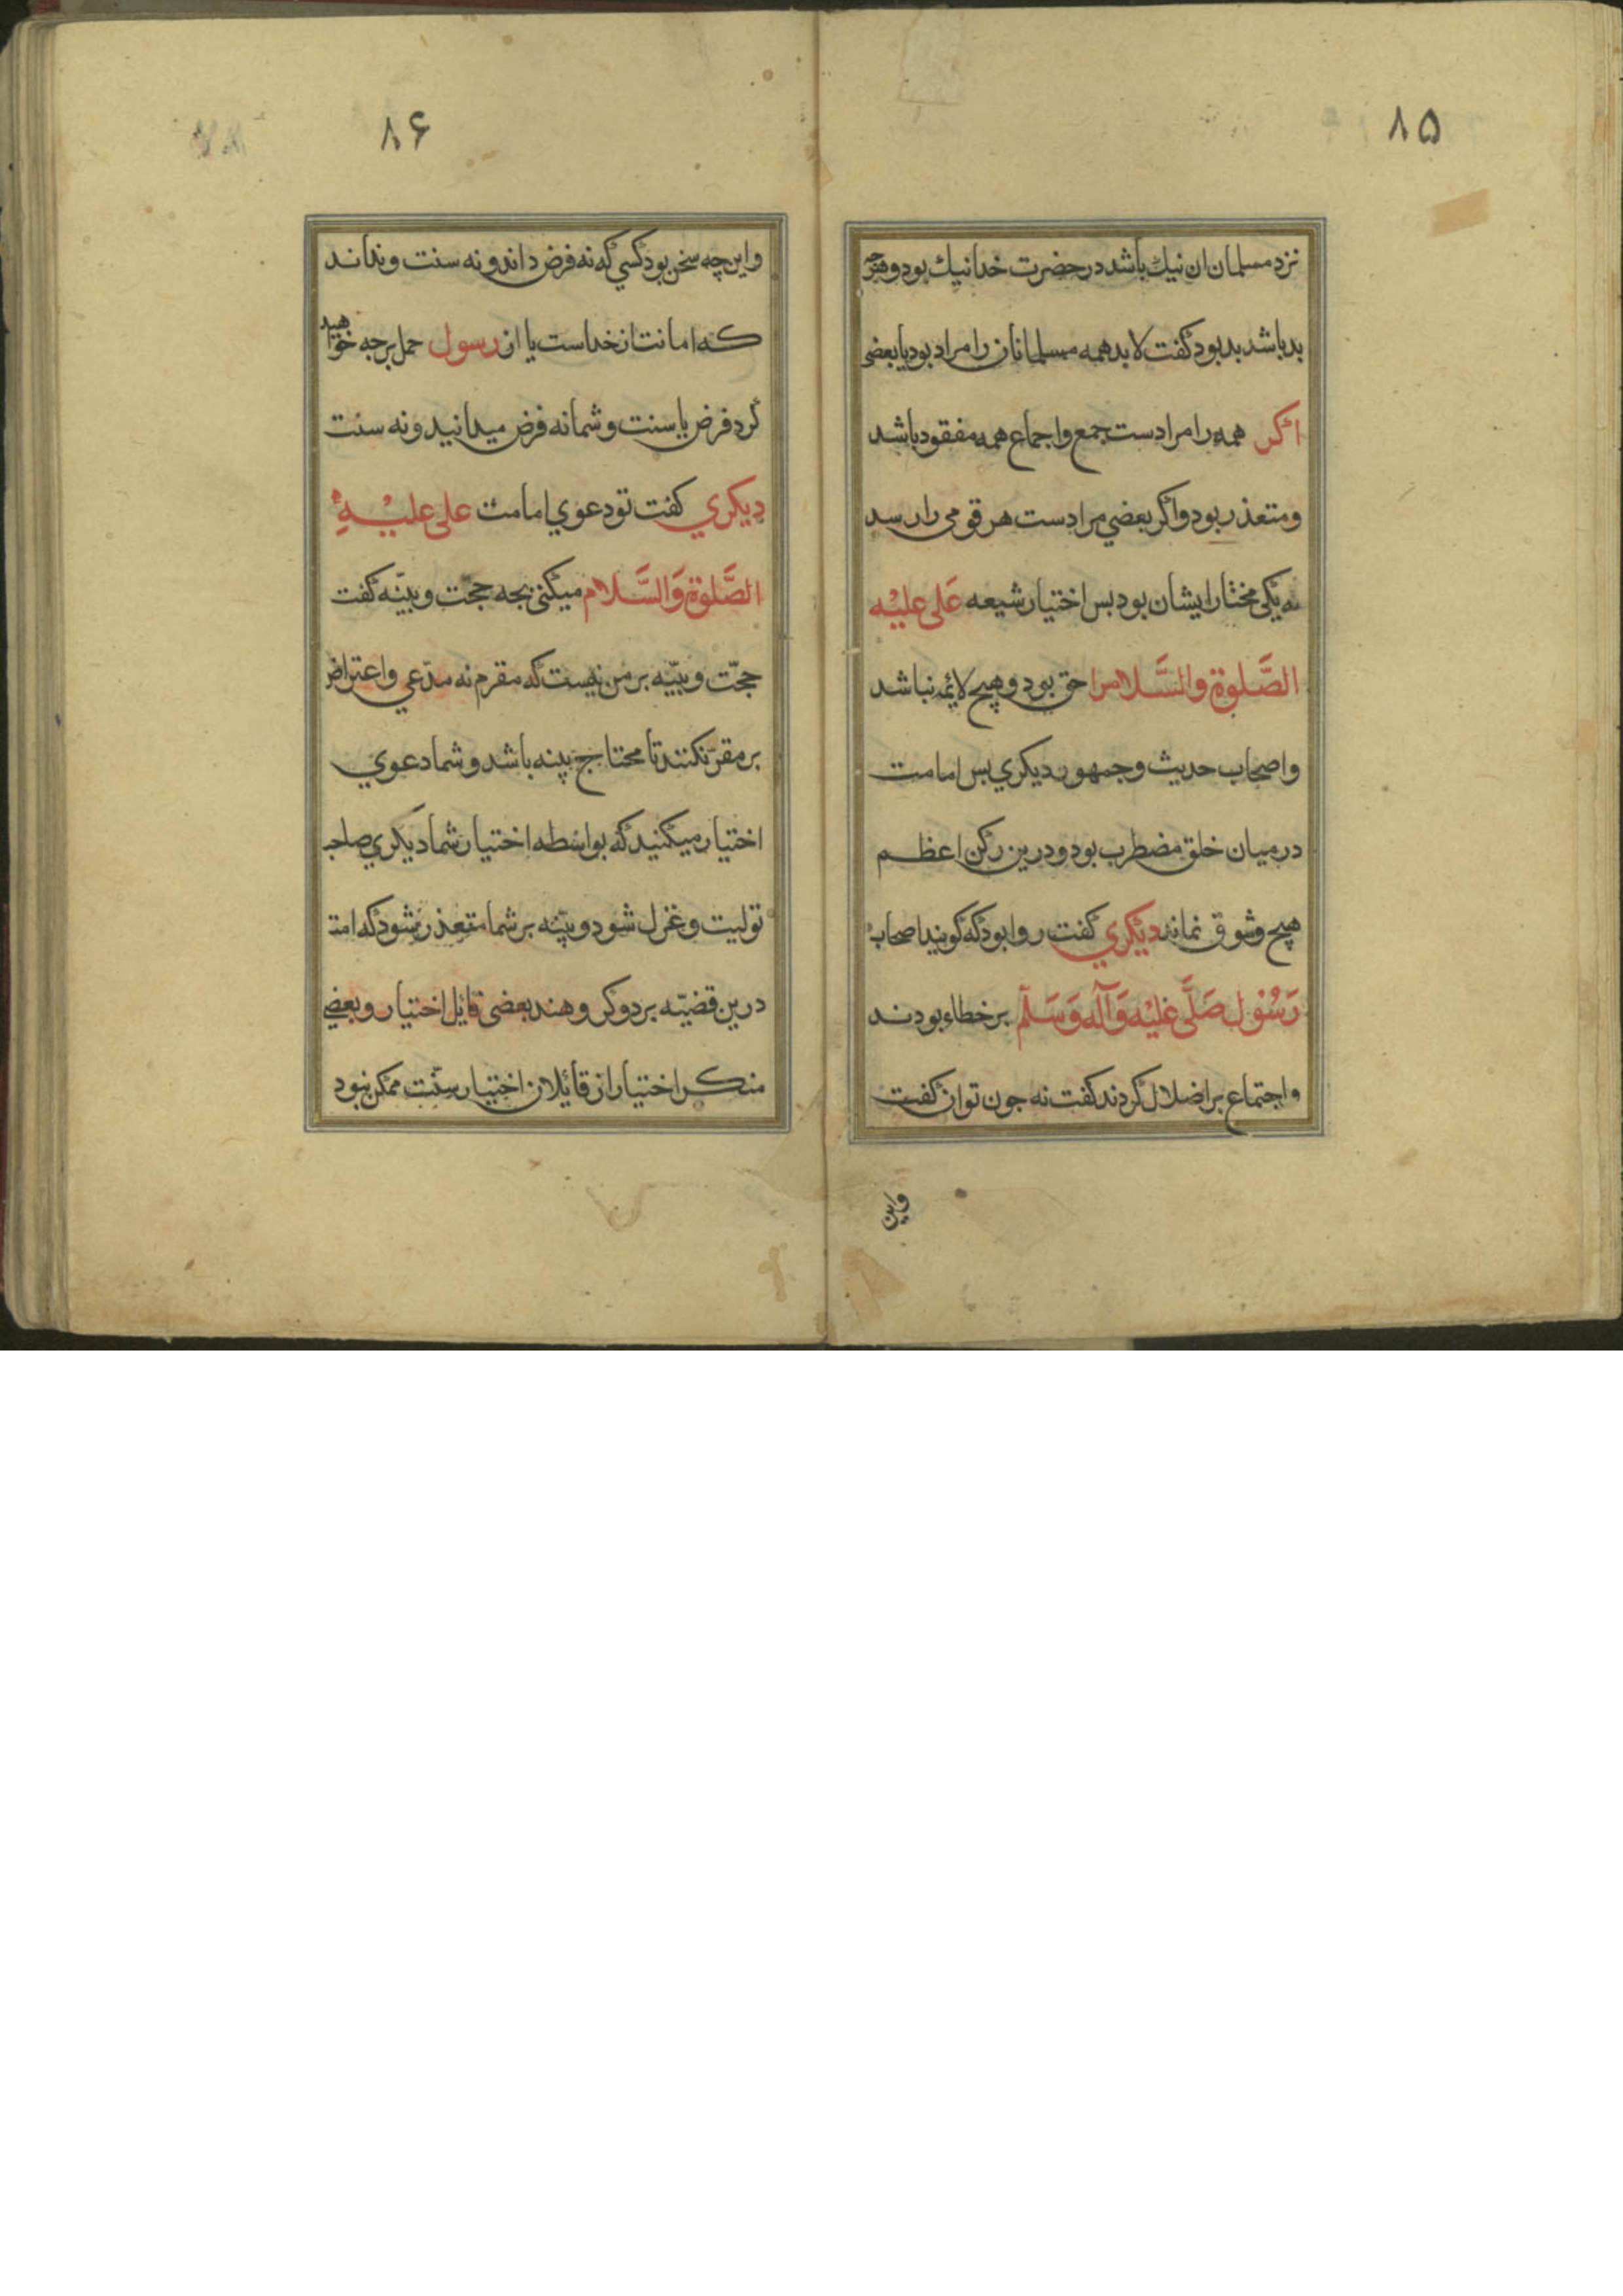 ۸۵
نزد مسلمان ان نیك باشد در حضرت خدا نیك بود و هرچه
بد باشد بد بود گفت لابد همه مسلمانان را مراد بود یا بعضی
اگر همه را مرادست جمع واجماع همه مفقود باشد
ومتعذر بود واگر بعضي مرادست هر قومی را رسد
که یکی مختار ایشان بود بس اختیار شیعه عَلی علیْه
الصَّلوة والسَّلام را حق بود و هیچ لائمه نباشد
واصحاب حدیث وجمهور دیکري بس امامت
در میان خلق مضطرب بود و درین رکن اعظم
هیچ وثوق نماند دیکري گفت روا بود که گویند اصحاب
رَسُول صَلَّی عَلیْه وَآلَه وَسَلَّم بر خطاء بودند
واجتماع بر اضلال کردند گفت نه جون توان گفت
واین
۸۶
واین چه سخن بود کسي که نه فرض داند و نه سنت و نداند
که امانت از خداست یا از رسول حمل بر جه خواهید
کرد فرض یا سنت و شما نه فرض میدانید و نه سنت
دیکري کفت تو دعوي امامت علی علیْهِ
الصَّلوة وَالسَّلام میکنی بجه حجّت و بیّنه گفت
حجّت و بیّنه بر من نیست که مقرم نه مدّعي واعتراض
بر مقرّ نکنند تا محتاج بینه باشد و شما دعوي
اختیار میکنید که بواسطه اختیار شما دیکري صاحب
تولیت و عزل شود و بیّنه بر شما متعذر شود که امت
درین قضیّه بر دو کروهند بعضی قایل اختیار و بعضي
منکر اختیار از قائلان اختیار سنّت ممکن نبود